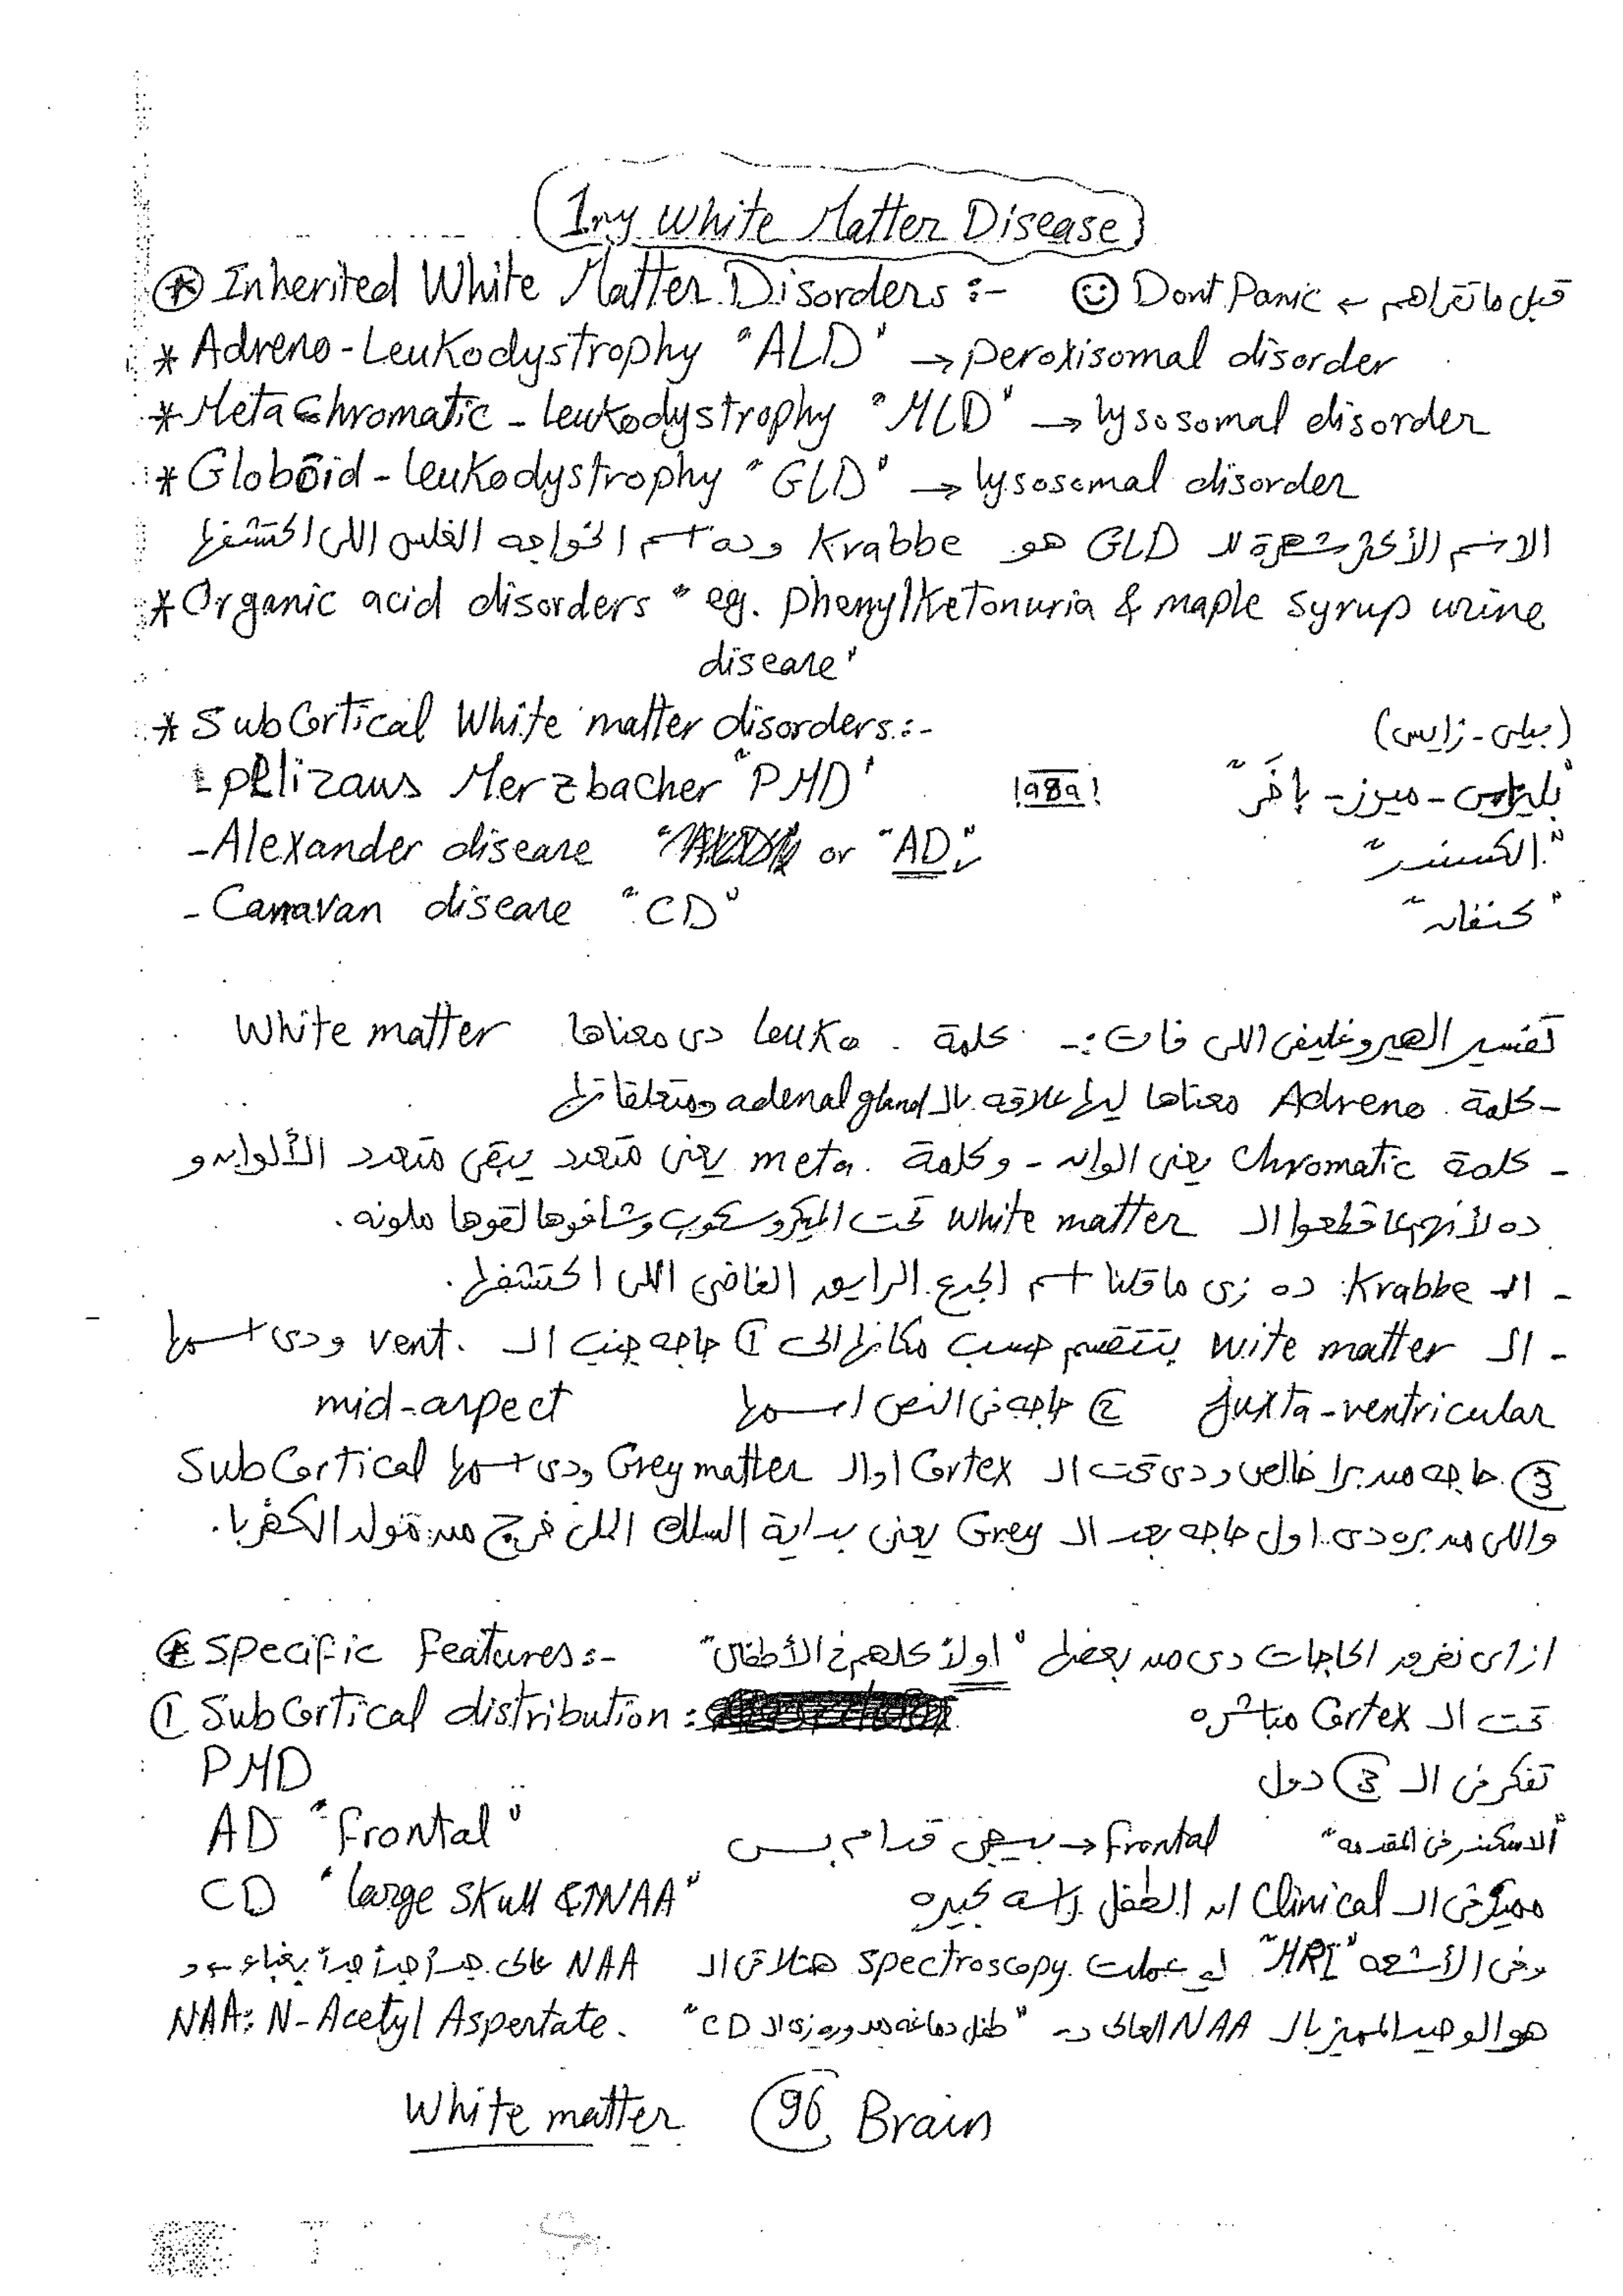 1ry White Matter Disease
⊛ Inherited White Matter Disorders :- ☺ Dont Panic ← قبل ما تقراهم
* Adreno-Leukodystrophy "ALD" → peroxisomal disorder
* MetaChromatic - leukodystrophy "MLD" → lysosomal disorder
* Globoid - leukodystrophy "GLD" → lysosomal disorder
الاسم الأكثر شهرة لل GLD هو Krabbe وده اسم الخواجه الفلس اللى اكتشفها
* Organic acid disorders "eg. Phenylketonuria & maple syrup urine
disease"
* SubCortical White matter disorders :-
- pelizaus Merzbacher "PMD" "بليزاس - ميرز - باخَر"
- Alexander disease or "AD" "الكسندر"
- Canavan disease "CD" "كنفان"
تفسير الهيروغليفى اللى فات :- كلمة Leuko دى معناها White matter
- كلمة Adreno معناها ليها علاقه بال adenal gland ومتعلقاتها
- كلمة Chromatic يعنى الوان - وكلمة meta يعنى متعدد يبقى متعدد الألوان و
ده لأنهم لما قطعوا ال White matter تحت الميكروسكوب وشافوها لقوها ملونه .
- ال Krabbe ده زى ما قلنا اسم الجدع الرايق الفاضى اللى اكتشفها .
- ال wite matter بتتقسم حسب مكانها الى ① حاجه جنب ال vent. ودى اسمها
juxta-ventricular ② حاجه فى النص اسمها mid-aspect
③ حاجه من برا خالص ودى تحت ال Cortex او ال Grey matter ودى اسمها SubCortical
واللى من بره دى اول حاجه بعد ال Grey يعنى بداية السلك اللى خرج من مولد الكهربا .
⊛ Specific Features :- ازاى نفرق الحاجات دى من بعضها "اولاً كلهم فى الأطفال"
① SubCortical distribution : تحت ال Cortex مباشره
PMD تفكر فى ال ③ دول
AD "frontal" Frontal → بييجى قدام بس "الاسكندر فى المقدمه"
CD "large skull & ↑NAA" مميز فى ال Clinical ان الطفل راسه كبيره
وفى الأشعه "MRI" لو عملت spectroscopy هتلاقى ال NAA عالى جداً جداً جداً بغباء و
هو الوحيد المميز بال NAA العالى "CD طفل دماغه مدوره زى ال" NAA: N-Acetyl Aspertate.
White matter 96 Brain